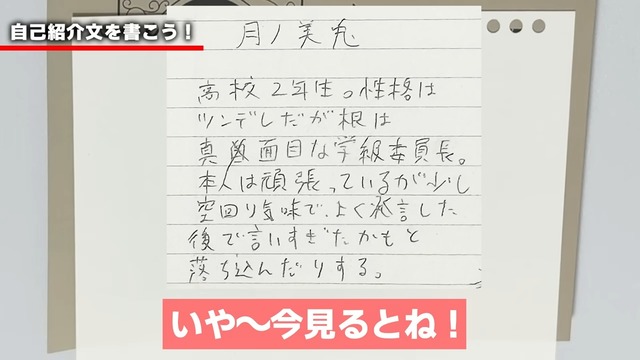 自己紹介文を書こう！
月ノ美兎
高校2年生。性格は
ツンデレだが根は
真面目な学級委員長。
本人は頑張っているが少し
空回り気味で、よく発言した
後で言いすぎたかもと
落ち込んだりする。
いや〜今見るとね！